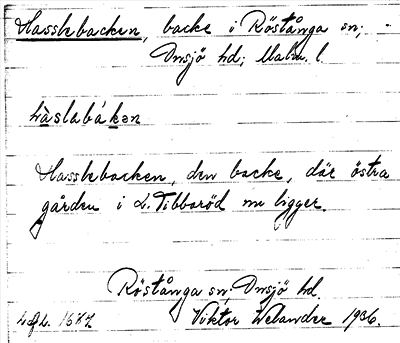 Hasslebacken, backe i Röstånga sn,
Onsjö hd; Malm. l.
hàslabákən
Hasslebacken, den backe, där östra
gården i L. Tibbaröd nu ligger.
Röstånga sn, Onsjö hd.
Viktor Welander 1936.